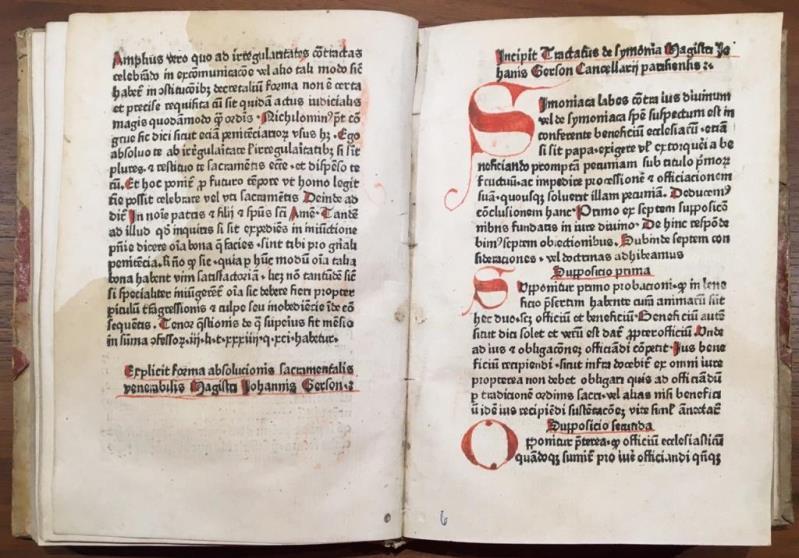 Amplius vero quo ad irregularitates cōtractas
celebrādo in excomunicacōe vel alio tali modo sic̄
habet̄ in ꝯstitucōibꝫ decretaliū forma non ē certa
et precise requisita cū sit quidā actus iudicialis
magis quodāmodo ꝙ̄ ordīs · Nichilominꝰ pt̄ con
grue sic dici sicut eciā penitēciariorꝝ vsus hꝫ · Ego
absoluo te ab irregl̄aritate l' irregl̄aritatibꝫ si sīt
plures · ⁊ restituo te sacramētis ecc̄e · et dispēso te
cū · Et hoc ponit̄ p futuro tēpore vt homo legit
īe possit celebrare vel vti sacramētis Deinde ad
dit̄ In noīe patris ⁊ filij ⁊ spūs sc̄ti Amē · Tandē
ad illud qd̄ inquiris si sit expediēs in iniūctione
pn̄ie dicere oīa bona q̄ facies · sint tibi pro gn̄ali
penitēcia · R̄no ꝙ sic · quia p hūc modū oīa talia
bona habent vim satisfactoriā · hec nō tantūdē sic̄
si specialiter iniūgerēt̄ oīa sic debere fieri propter
piculū trāgressionis ⁊ culpe seu inobediēcie īde cō
sequētis · Tenor q̄stionis de q̄ supeius fit mētio
in sūma ꝯfessoꝝ · iij · li · t · xxxiiij · q · xci · habetur ·
Explicit forma absolucionis sacramentalis
venerabilis Magistri Johannis Gerson · :·
Incipit Tractatus de symonia Magistri Jo
hanis Gerson Cancellarij parisiensis :·
Simoniaca labes cōtra ius diuinum
vel de symoniaca spē suspectum est in
conferente beneficiū ecclesiacū · etiā
si sit papa · exigere vel extorqueri a be
neficiando promptā pecuniam sub titulo pīmoꝝ
fructuū · ac impedire ꝓcessionē ⁊ officiacionem
suā · quousqꝫ soluerit illam pecuniā · Deducemꝰ
cōclusionem hanc · Primo ex septem supposicō
nibus fundatis in iure diuino · De hinc respōde
bimꝰ septem obiectionibus · Subinde septem con
sideracōnes · vel doctrinas adhibeamus
Supposicio prima
Supponitur primo probacioni · ꝙ in bene
ficio p̄sertim habente curā animarū sūt
hec duo · scꝫ officiū et beneficiū · Beneficiū autē
sicut dici solet et verū est dat̄ ꝓpter officiū Unde
ad ius ⁊ obligacōneꝫ officiādi cōpetit · Jus bene
ficiū recipiendi · sicut infra docebit̄ ex omni iure
propterea non debet obligari quis ad officiādū
p tradicione ordinis sacri · vel alias nisi beneficī
ū īdē ius recipiēdi sustētacōeꝫ vite simlʼ annectat̄
Supposicio secunda
Opponitur p̄terea · ꝙ officiū ecclesiasticū
quādoqꝫ sumit̄ pro iure officiandi qn̄qꝫ
6